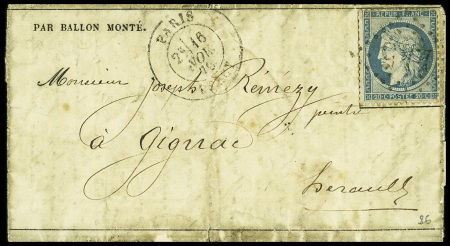 PAR BALLON MONTÉ.
PARIS
16
NOV.
REPUB. FRANC.
20 POSTES 20
Monsieur Joseph Rémézy
peintre
à Gignac
herault